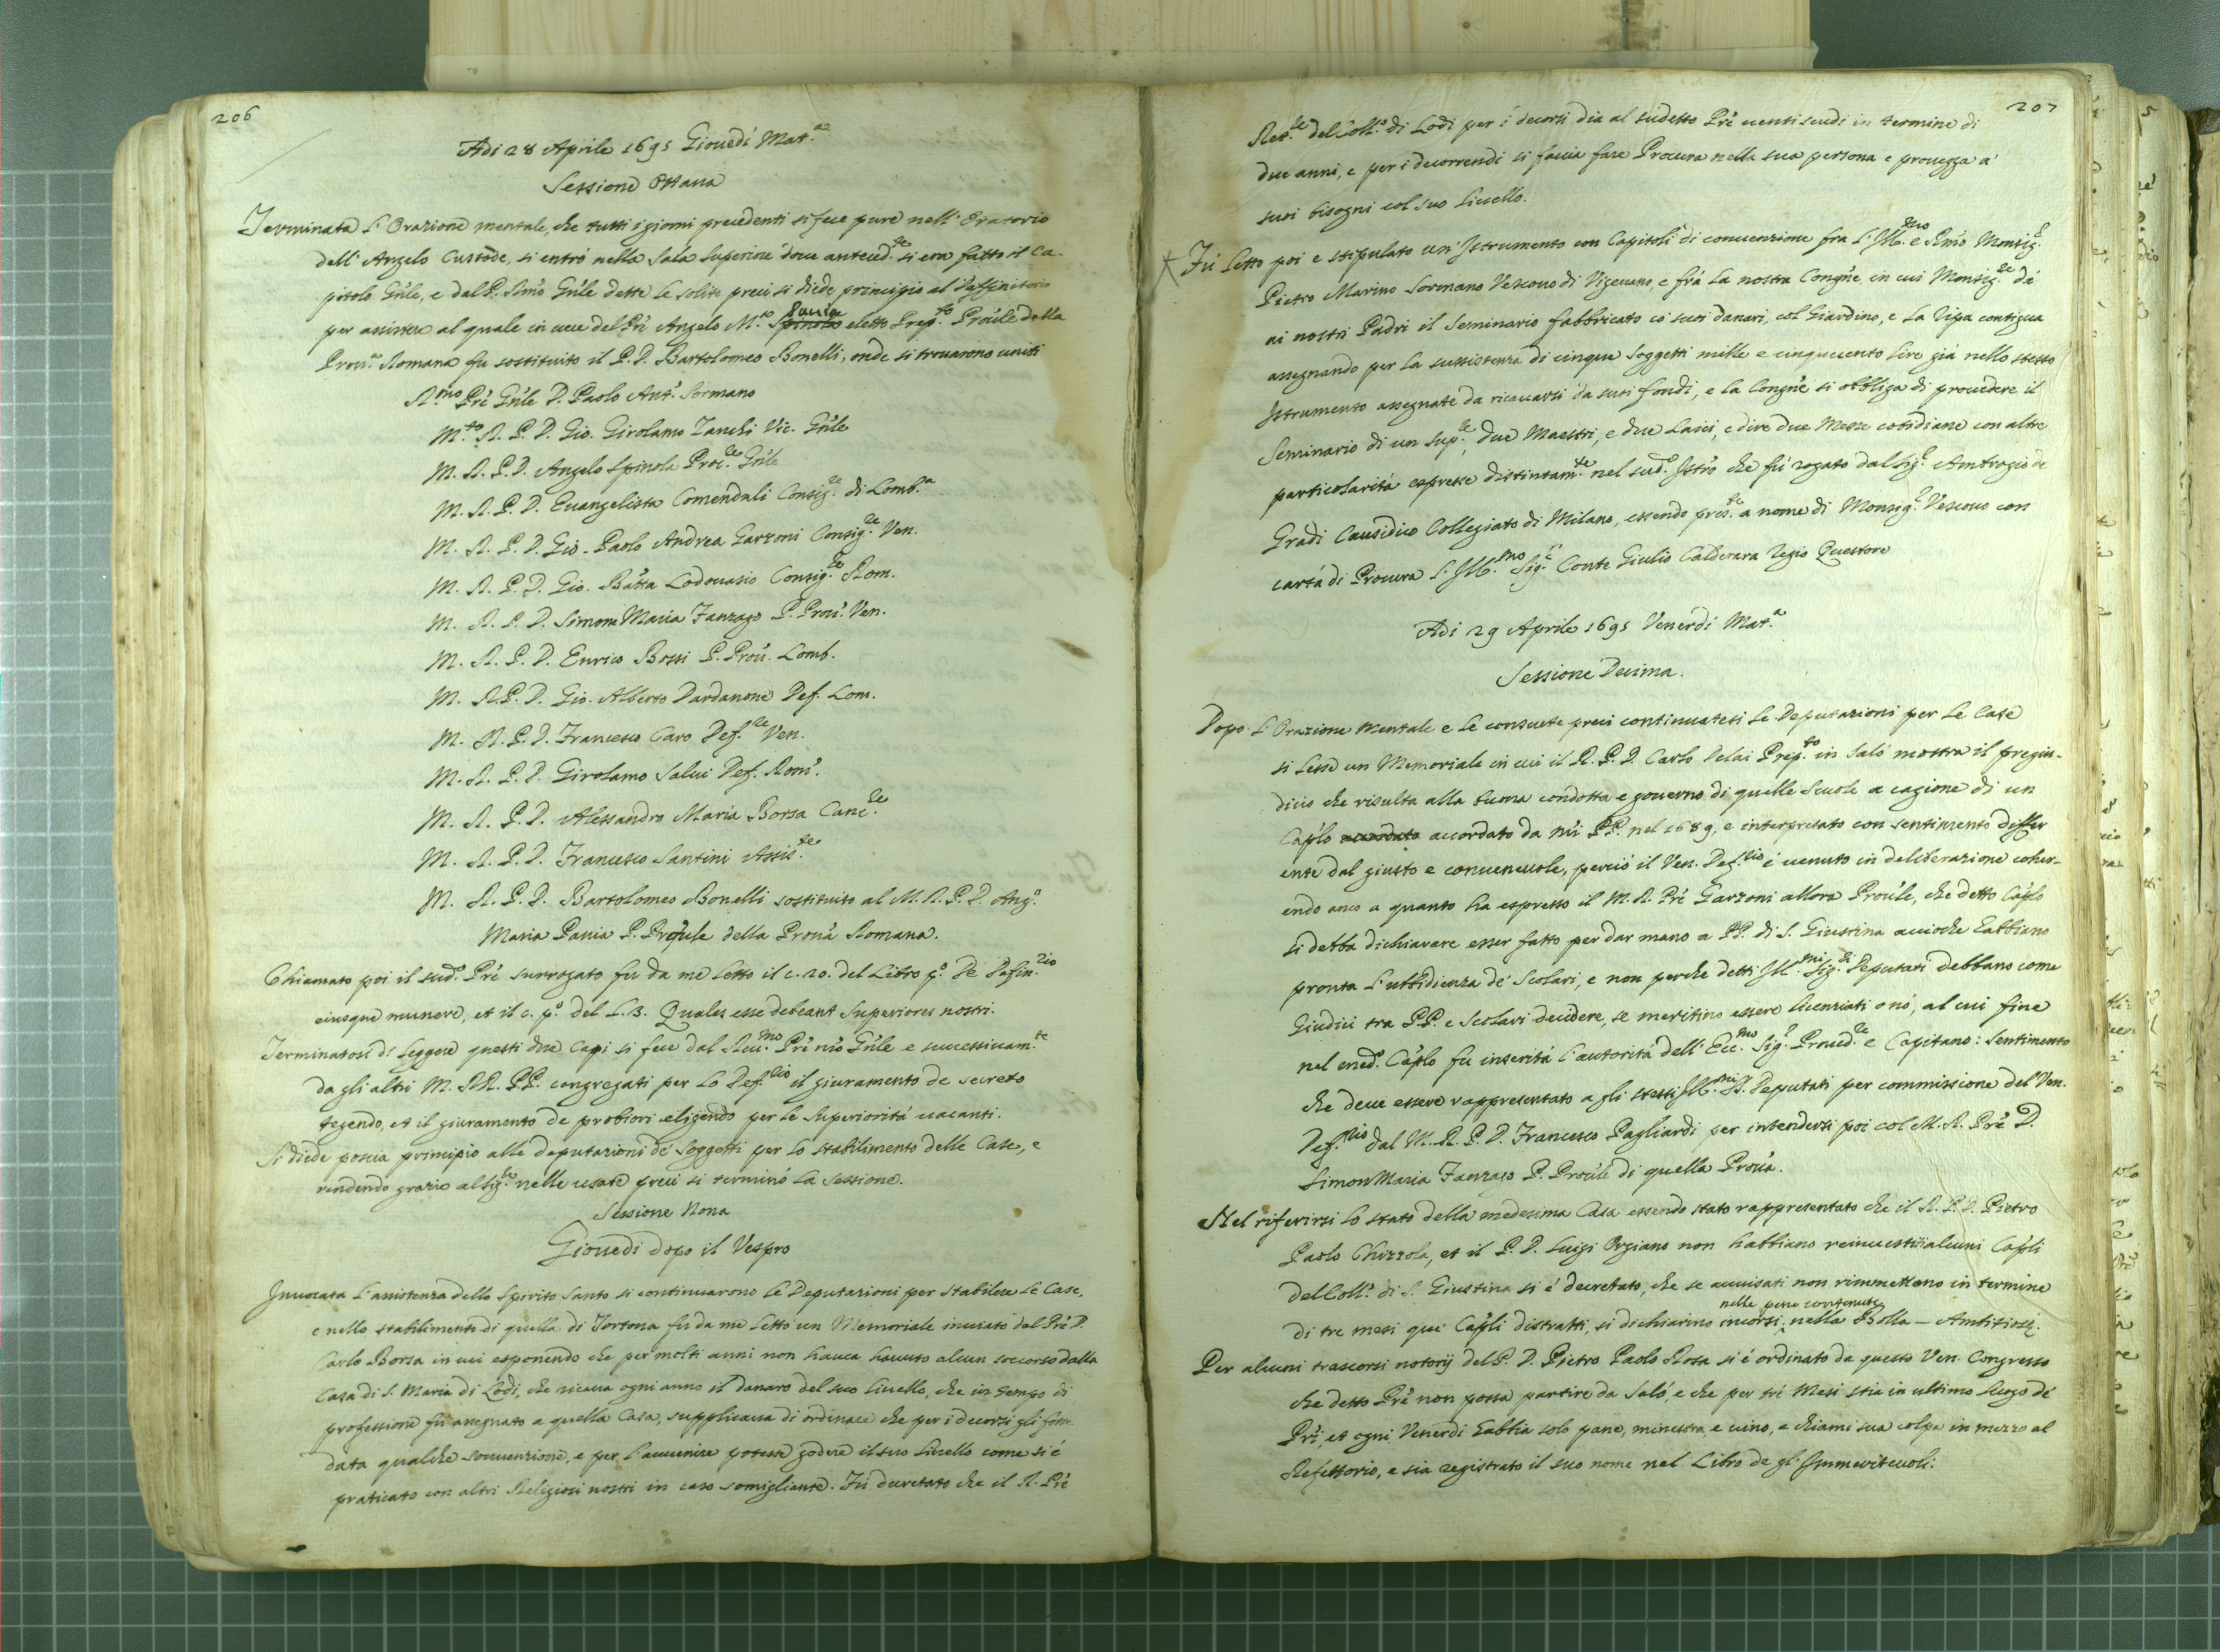 206
Adi 28 Aprile 1695 Giovedì Mat.a
Sessione Ottava
Terminata l'Orazione mentale, che tutti i giorni precedenti si fece pure nell'Oratorio
dell'Angelo Custode, si entrò nella Sala Superiore dove anteced.te si era fatto il Ca-
pitolo Gn̄le, e dal P. Rmō Gn̄le dette le solite preci si diede principio al Deffinitorio
per assistere al quale in vece del Prē Angelo M.a Spinola Pavia eletto Prep.to Provīle della
Prov.a Romana fu sostituito il P. D. Bartolomeo Bonelli, onde si trovarono uniti
R.mo Prē Gn̄le D. Paolo Ant.o Sormano
M.to R. P. D. Gio. Girolamo Zanchi Vic. Gn̄le
M. R. P. D. Angelo Spinola Proc.re Gn̄le
M. R. P. D. Evangelista Comenduli Consig.re di Lomb.a
M. R. P. D. Gio. Paolo Andrea Garzoni Consig.re Ven.
M. R. P. D. Gio. Batt̄a Lodovasio Consig.re Rom.
M. R. P. D. Simon Maria Fanzago P. Prov̄. Ven.
M. R. P. D. Enrico Bossi P. Prov̄. Lomb.
M. R. P. D. Gio. Alberto Dardanone Def. Lom.
M. R. P. D. Francesco Caro Def.re Ven.
M. R. P. D. Girolamo Salvi Def. Rom̄.
M. R. P. D. Alessandro Maria Borsa Canc.re
M. R. P. D. Francesco Santini Assis.te
M. R. P. D. Bartolomeo Bonelli sostituito al M. R. P. D. Ang.o
Maria Pavia P. Provīle della Prov̄a Romana.
Chiamato poi il sud.o Prē surrogato fu da me letto il c. 20. del Libro p.o De Defin.rio
eiusque munere, et il c. p.o del L. 3. Quales esse debeant Superiores nostri.
Terminatosi di leggere questi due Capi si fece dal Rev.mo Prē nr̄o Gn̄le e successivam.te
da gli altri M. RR. PP. congregati per lo Def.rio il giuramento de secreto
tegendo, et il giuramento de probiori eligendo per le Superiorità vacanti.
Si diede poscia principio alle deputazioni de Soggetti per lo stabilimento delle Case, e
rendendo grazie al Sig.re nelle usate preci si terminò la Sessione.
Sessione Nona
Giovedì dopo il Vespro
Invocata l'assistenza dello Spirito Santo si continuarono le Deputazioni per stabilire le Case,
e nello stabilimento di quella di Tortona fù da me letto un Memoriale inviato dal Prē D.
Carlo Borsa in cui esponendo che per molti anni non havea havuto alcun soccorso dalla
Casa di S. Maria di Lodi, che ricava ogni anno il danaro del suo livello, che in tempo di
professione fù assegnato a quella Casa, supplicava di ordinare che per i decorsi gli fosse
data qualche sovvenzione, e per l'avvenire potesse godere il suo livello come si è
praticato con altri Religiosi nostri in caso somigliante. Fù decretato che il R. Prē
207
Ret.re del Coll.o di Lodi per i decorsi dia al sudetto Prē venti scudi in termine di
due anni, e per i decorrendi si faccia fare Procura nella sua persona e provegga a'
suoi bisogni col suo livello.
Fù letto poi e stipulato un'Istrumento con Capitoli di convenzione fra l'Ill.mo e Rmō Monsig.r
Pietro Marino Sormano Vescovo di Vigevano, e frà la nostra Congn̄e in cui Monsig.re dà
ai nostri Padri il Seminario fabbricato co' suoi danari, col Giardino, e la Ripa contigua
assegnando per la sussistenza di cinque Soggetti mille e cinquecento lire già nello stesso
Istrumento assegnate da ricavarsi da suoi fondi, e la Congn̄e si obbliga di provedere il
Seminario di un Sup.re, due Maestri, e due Laici, e dire due Messe cotidiane con altre
particolarità espresse distintam.te nel sud.o Istr̄o che fù rogato dal Sig.r Ambrogio de
Gradi Causidico Collegiato di Milano, essendo pres.te a nome di Monsig.r Vescovo con
carta di Procura l'Ill.mo Sig.r Conte Giulio Calderara Regio Questore
Adi 29 Aprile 1695 Venerdì Mat.a
Sessione Decima.
Dopo l'Orazione Mentale e le consuete preci continuatesi le Deputazioni per le Case
si lesse un Memoriale in cui il R. P. D. Carlo Delai Prep.to in Salò mostra il pregiu-
dicio che risulta alla buona condotta e governo di quelle Scuole a cagione di un
Cap̄lo accordato accordato da nr̄i PP. nel 1689, e interpretato con sentimento differ
ente dal giusto e convenevole, perciò il Ven. Def.rio è venuto in deliberazione coher-
endo anco a quanto ha espresso il M. R. Prē Garzoni allora Provīle, che detto Cap̄lo
si debba dichiarare esser fatto per dar mano a PP. di S. Giustina acciochè habbiano
pronta l'ubbidienza de' Scolari, e non perche detti Ill.mi Sig.ri Deputati debbano come
Giudici tra PP. e Scolari decidere, se meritino essere licenziati o nò, al cui fine
nel med.o Cap̄lo fu inserita l'autorità dell'Ecc.mo Sig.r Proved.re e Capitano: sentimento
che deve essere rappresentato a gli stessi Ill.mi SS. Deputati per commissione del Ven.
Def.rio dal M. R. P. D. Francesco Pagliardi per intendersi poi col M. R. Prē D.
Simon Maria Fanzago P. Provīle di quella Prov̄a.
Nel riferirsi lo stato della medesima Casa essendo stato rappresentato che il R. P. D. Pietro
Paolo Chizzola, et il P. D. Luigi Orgiano non habbiano reinvestiti alcuni Cap̄li
del Coll.o di S. Giustina si è decretato, che se avvisati non rimmettono in termine
di tre mesi quei Cap̄li distratti, si dichiarino incorsi nelle pene contenute nella Bolla – Ambitiosę.
Per alcuni trascorsi notorij del P. D. Pietro Paolo Rosa si è ordinato da questo Ven. Congresso
che detto Prē non possa partire da Salò, e che per trè Mesi stia in ultimo luogo de'
Prī, et ogni Venerdì habbia solo pane, minestra, e vino, e chiami sua colpa in mezzo al
Refettorio, e sia registrato il suo nome nel Libro de gl'Immeritevoli.